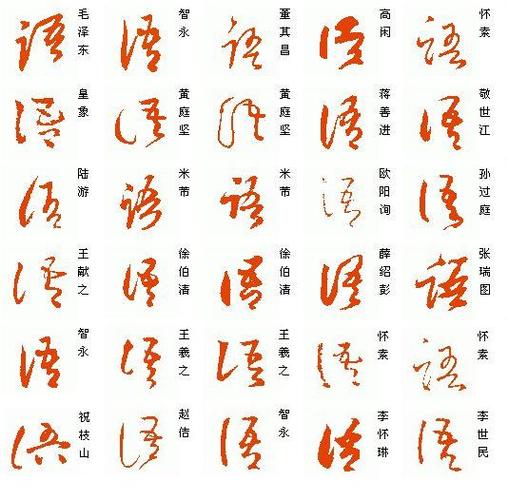 语 毛泽东 语 智永 语 董其昌 语 高闲 语 怀素
语 皇象 语 黄庭坚 语 黄庭坚 语 蒋善进 语 敬世江
语 陆游 语 米芾 语 米芾 语 欧阳询 语 孙过庭
语 王献之 语 徐伯清 语 徐伯清 语 薛绍彭 语 张瑞图
语 智永 语 王羲之 语 王羲之 语 怀素 语 怀素
语 祝枝山 语 赵佶 语 智永 语 李怀琳 语 李世民